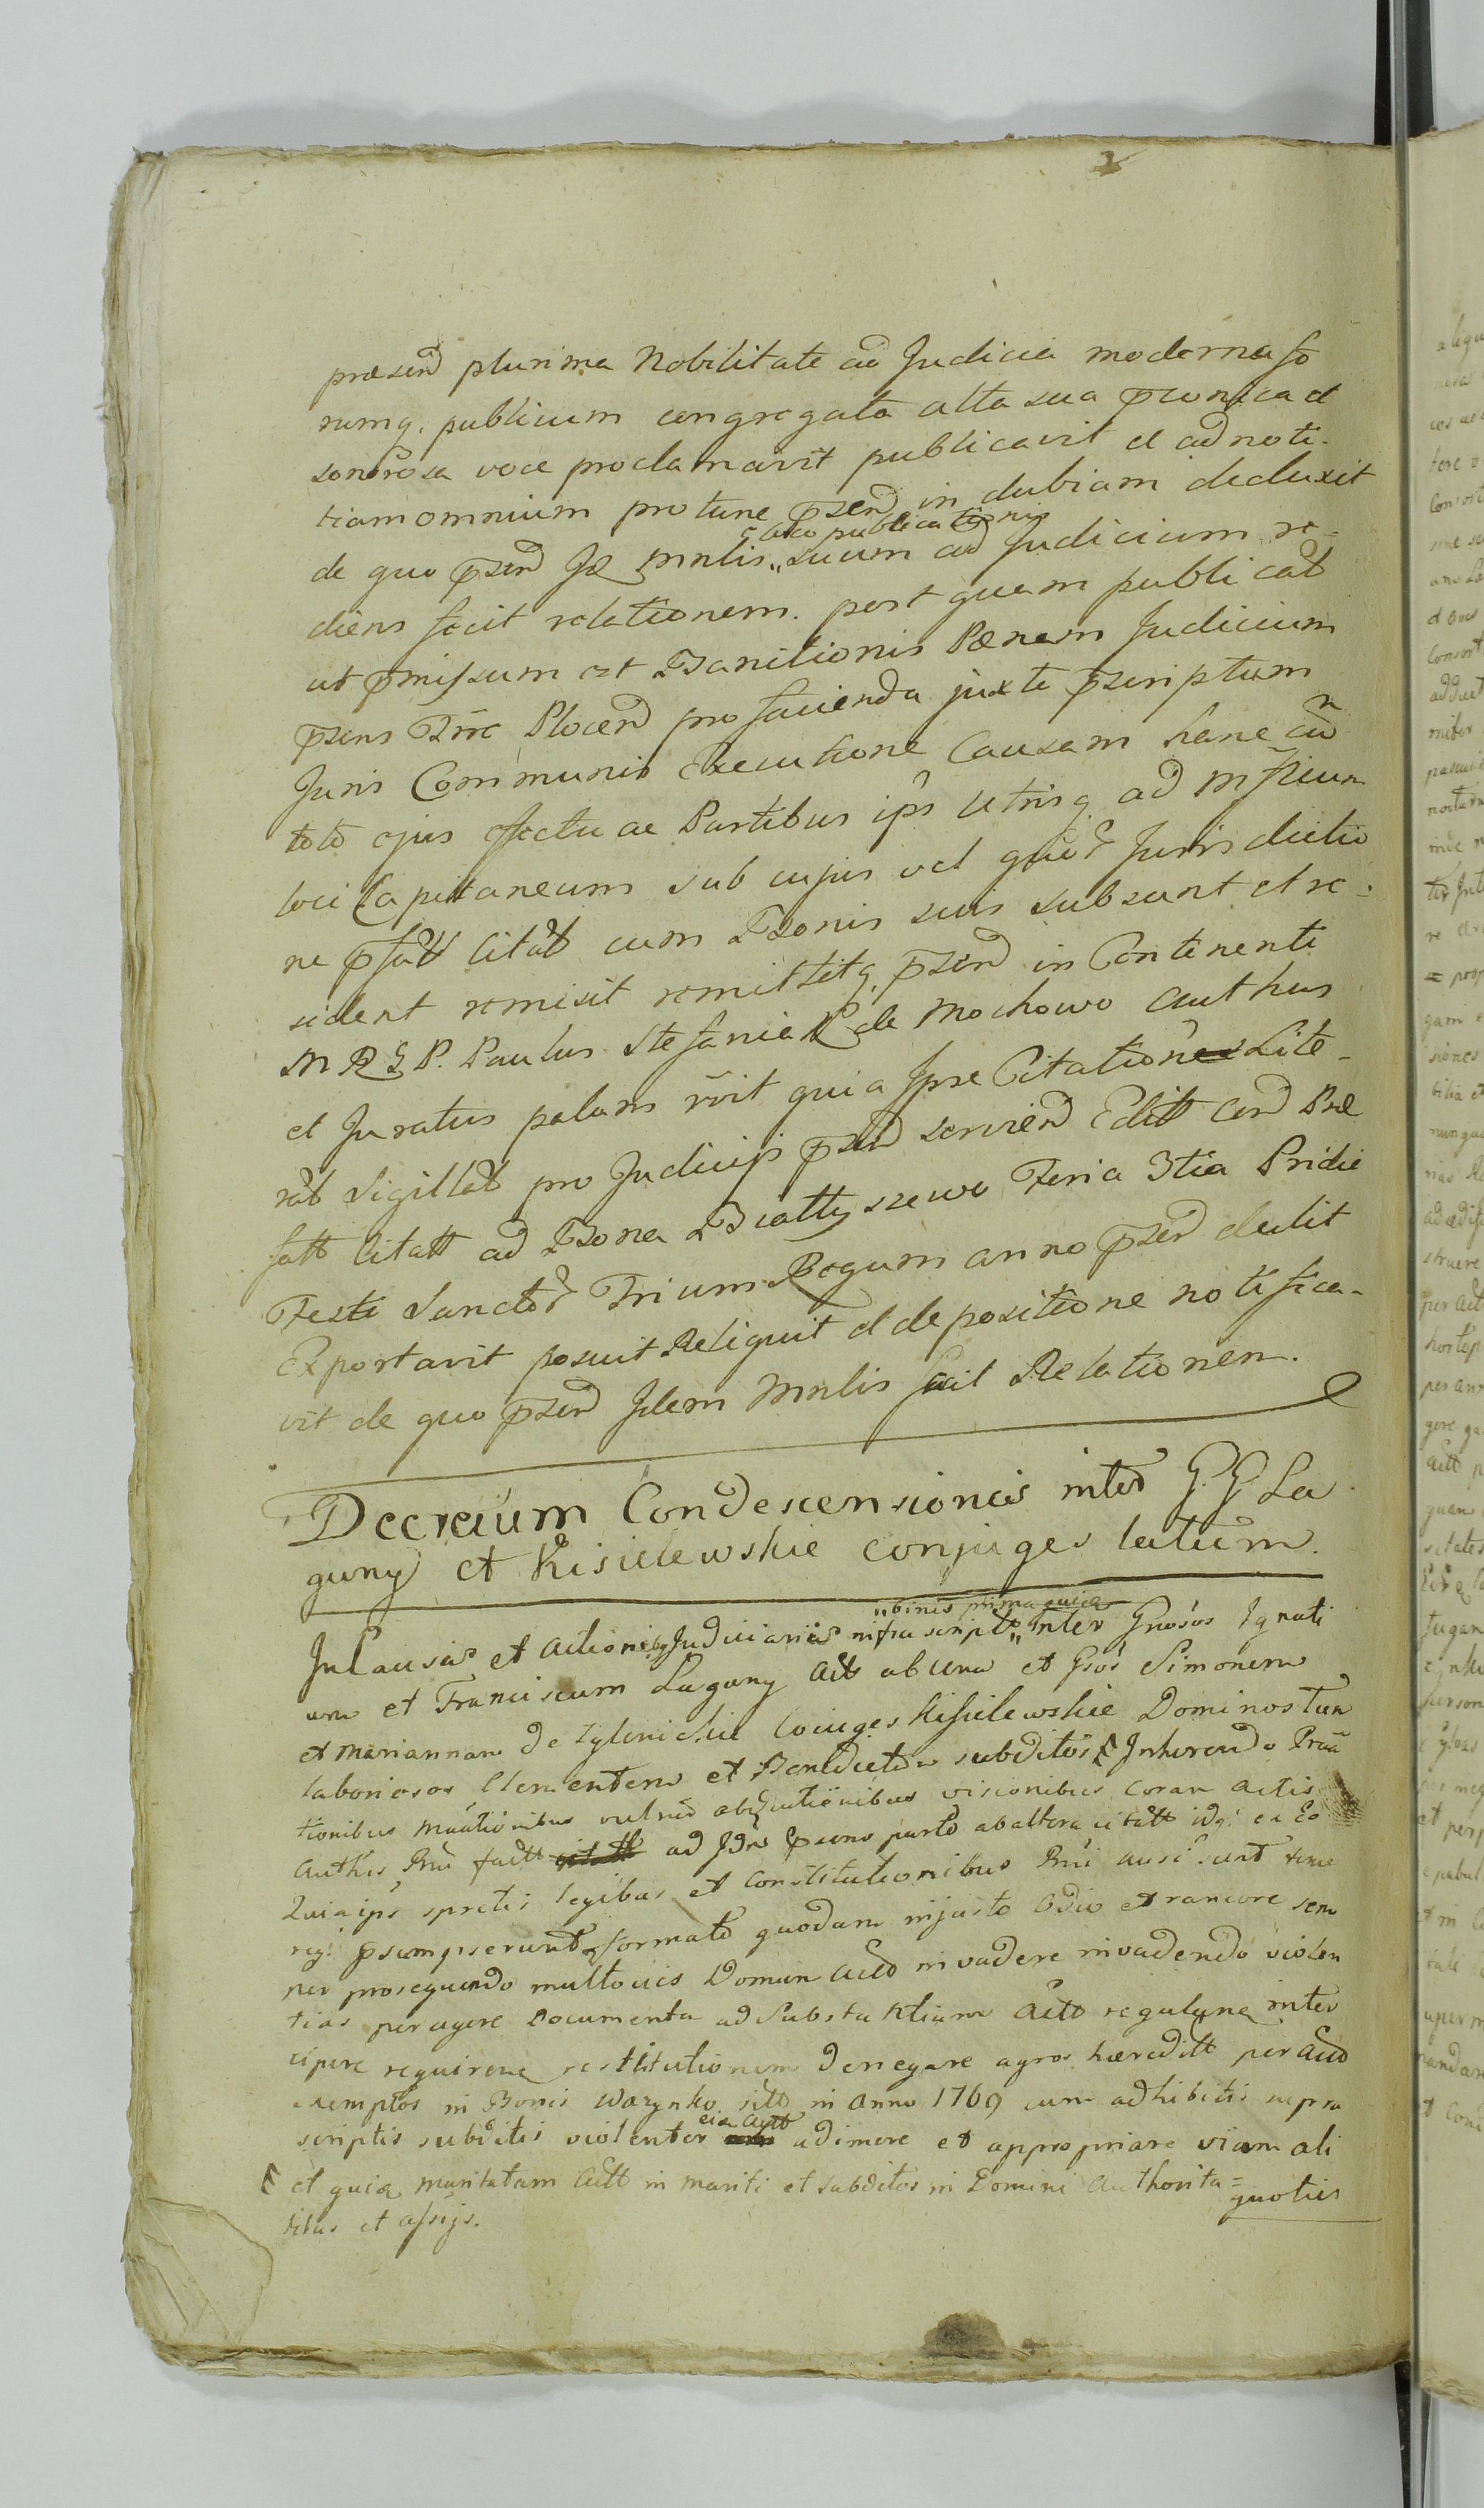 præsend plurima Nobilitate ad Judicia moderna fo
rumq. publicum congregata alta sua pconica et
sonorosa voce proclamavit publicavit et ad noti-
tiam omnium protunc psend in dubiam deduxit
a loco publicationis
de quo psend Jd Mnlis suum ad Judicium re-
diens fecit relationem. post quam publicat
ut pmissum est Banitionis Pœnam Judicium
psens Trre Plocend pro facienda juxta pscriptum
Juris Communis Executione Causam hanc cum
toto ejus effectu ac Partibus ips utrisq ad Mficum
loci Capitaneum sub cujus vel quor Jurisdictio
ne psatt Citat cum Bonis suis subsunt et re-
sident remisit remittitq psend in Continenti
M R S P. Paulus Stefaniak de Mochowo authus
et Juratus palam rvit quia Ipse Citationes Lite-
rat Sigillat pro Judicijs psend serviend Editt cord Præ
fatt Citatt ad Bona Białłyszewo Feria 3tia Pridie
Festi Sanctor Trium Regum anno psend dedit
Exportavit posuit Reliquit et de positione notifica-
vit de quo psend Idem Mnlis fecit Relationem.
Decretum Condescensionis inter G.G La
guny et Kisielewskie conjuges latum.
binis prima quia
In Causis et actionibq Judiciariis infra script Inter Gnosos Ignati
um et Franciscum Laguny Act ab una et Gsos Simonem
et Mariannam De Zylinickie Coiuges Kisielewskie Dominos Tum
laboriosos Clementem et Benedictum subditos Inherendo Præ
tionibus visionibus coram actis
authis Rni factt citatt ad Jdm psens parte ab altera citatt idq: ex Eo
Quia ips spretis legibus et Constitutionibus Rni ausi sunt teme
re psumpserunt formato quodam injusto odio et rancore sem
per prosequendo multocies Domum Acto invadere invadendo violen
tias peragere Documenta ad Substantiam Actt inter
cipere requirere restitutionem denegare agros hæreditt per Acto
exemptos in Bonis Warynko sitto in anno 1769 cum adhibitis supra
eis actt
scriptis subditis violenter adimere et appropriare viam ali
quoties
et quia maritatam Actt in mariti et subditos in Domini Authorita=
titus et assijs.